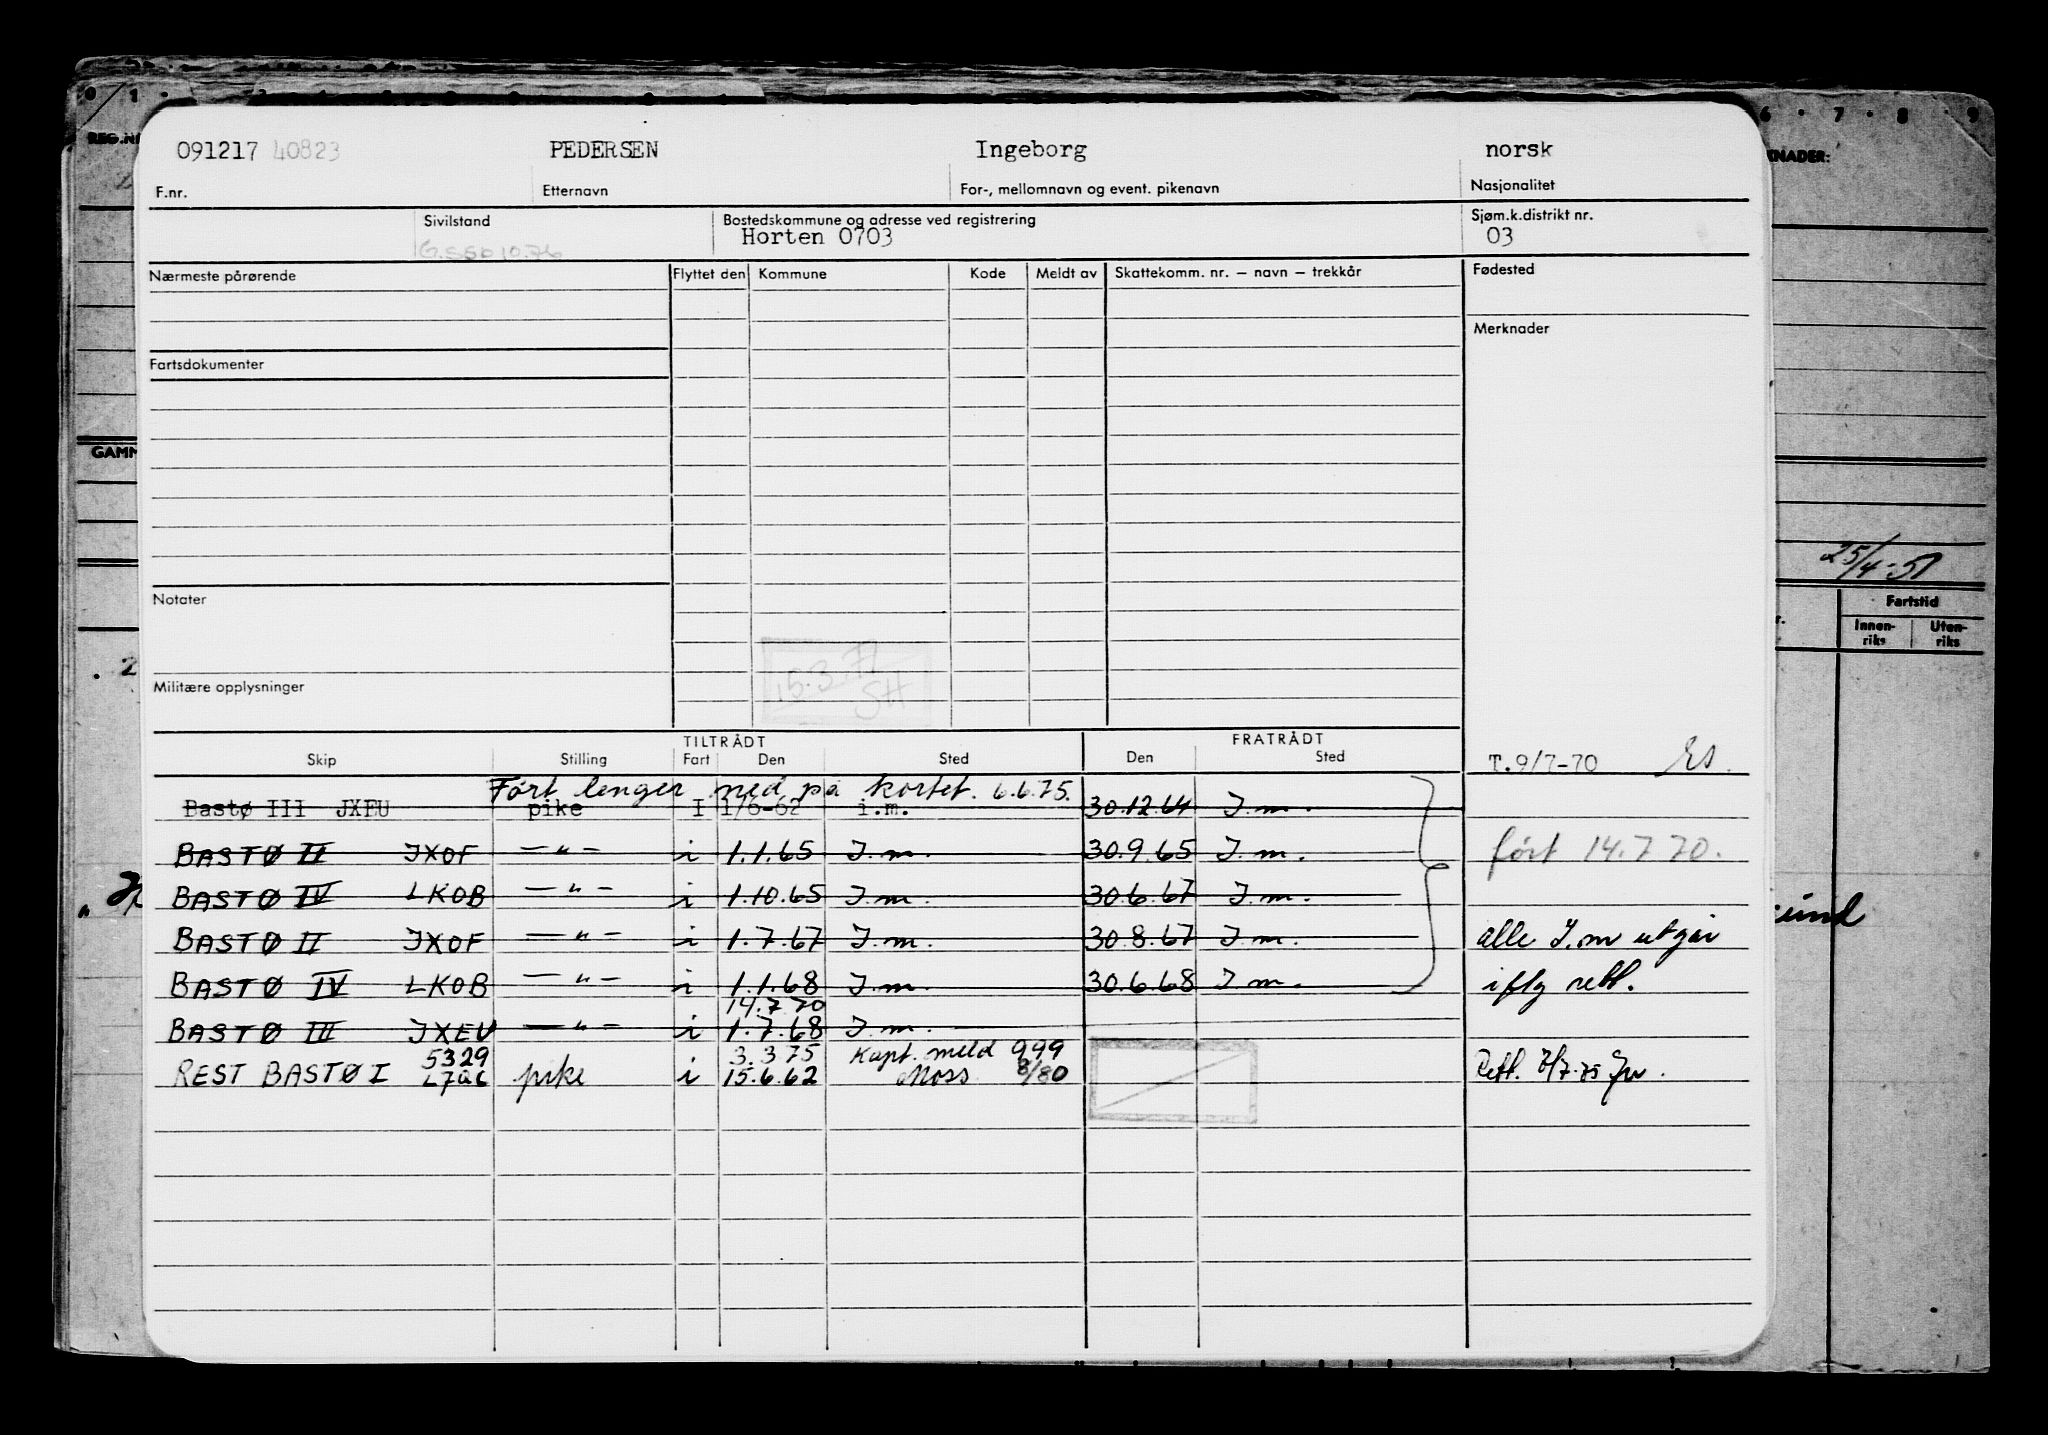 091217 40823 PEDERSEN Ingeborg norsk
F.nr. Etternavn For-, mellomnavn og event. pikenavn Nasjonalitet
Sivilstand Bostedskommune og adresse ved registrering Sjøm.k.distrikt nr.
Horten 0703 03
Nærmeste pårørende Flyttet den Kommune Kode Meldt av Skattekomm. nr. – navn – trekkår Fødested
Merknader
Fartsdokumenter
Notater
15.3.77
SH
Militære opplysninger
TILTRÅDT FRATRÅDT
Skip Stilling Fart Den Sted Den Sted T.9/7-70
Ført lenger ned på kortet. 6.6.75.
Bastø III JXEU pike I 1/6-62 i.m. 30.12.64 I.m.
BASTØ II JXOF —"— i 1.1.65 I.m. 30.9.65 I.m. ført 14.7 70.
BASTØ IV LKOB —"— i 1.10.65 I.m. 30.6.67 I.m.
BASTØ II JXOF —"— i 1.7.67 I.m. 30.8.67 I.m. alle I.m utgår
BASTØ IV LKOB —"— i 1.1.68 I.m. 30.6.68 I.m. iflg rett.
14.7 70
BASTØ III JXEU —"— i 1.7.68 I.m.
5329 3.3 75 Kapt. meld 999
REST BASTØ I pike i 15.6.62 Moss 8/80 Rett. 7/7-75
REG.NR
KNADER:
GAMM
25/4-51
Fartstid
Innen-riks Uten-riks